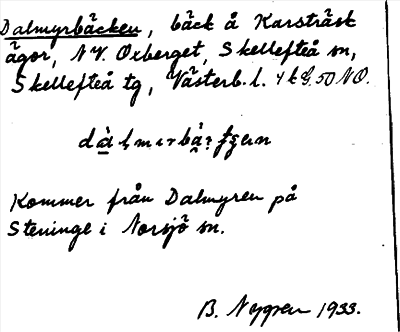 Dalmyrbäcken, bäck å Karsträsk
ägor, NV. Oxberget, Skellefteå sn,
Skellefteå tg, Västerb. l. 50 NO.
Kommer från Dalmyren på
Steninge i Norsjö sn.
B. Nygren 1933.